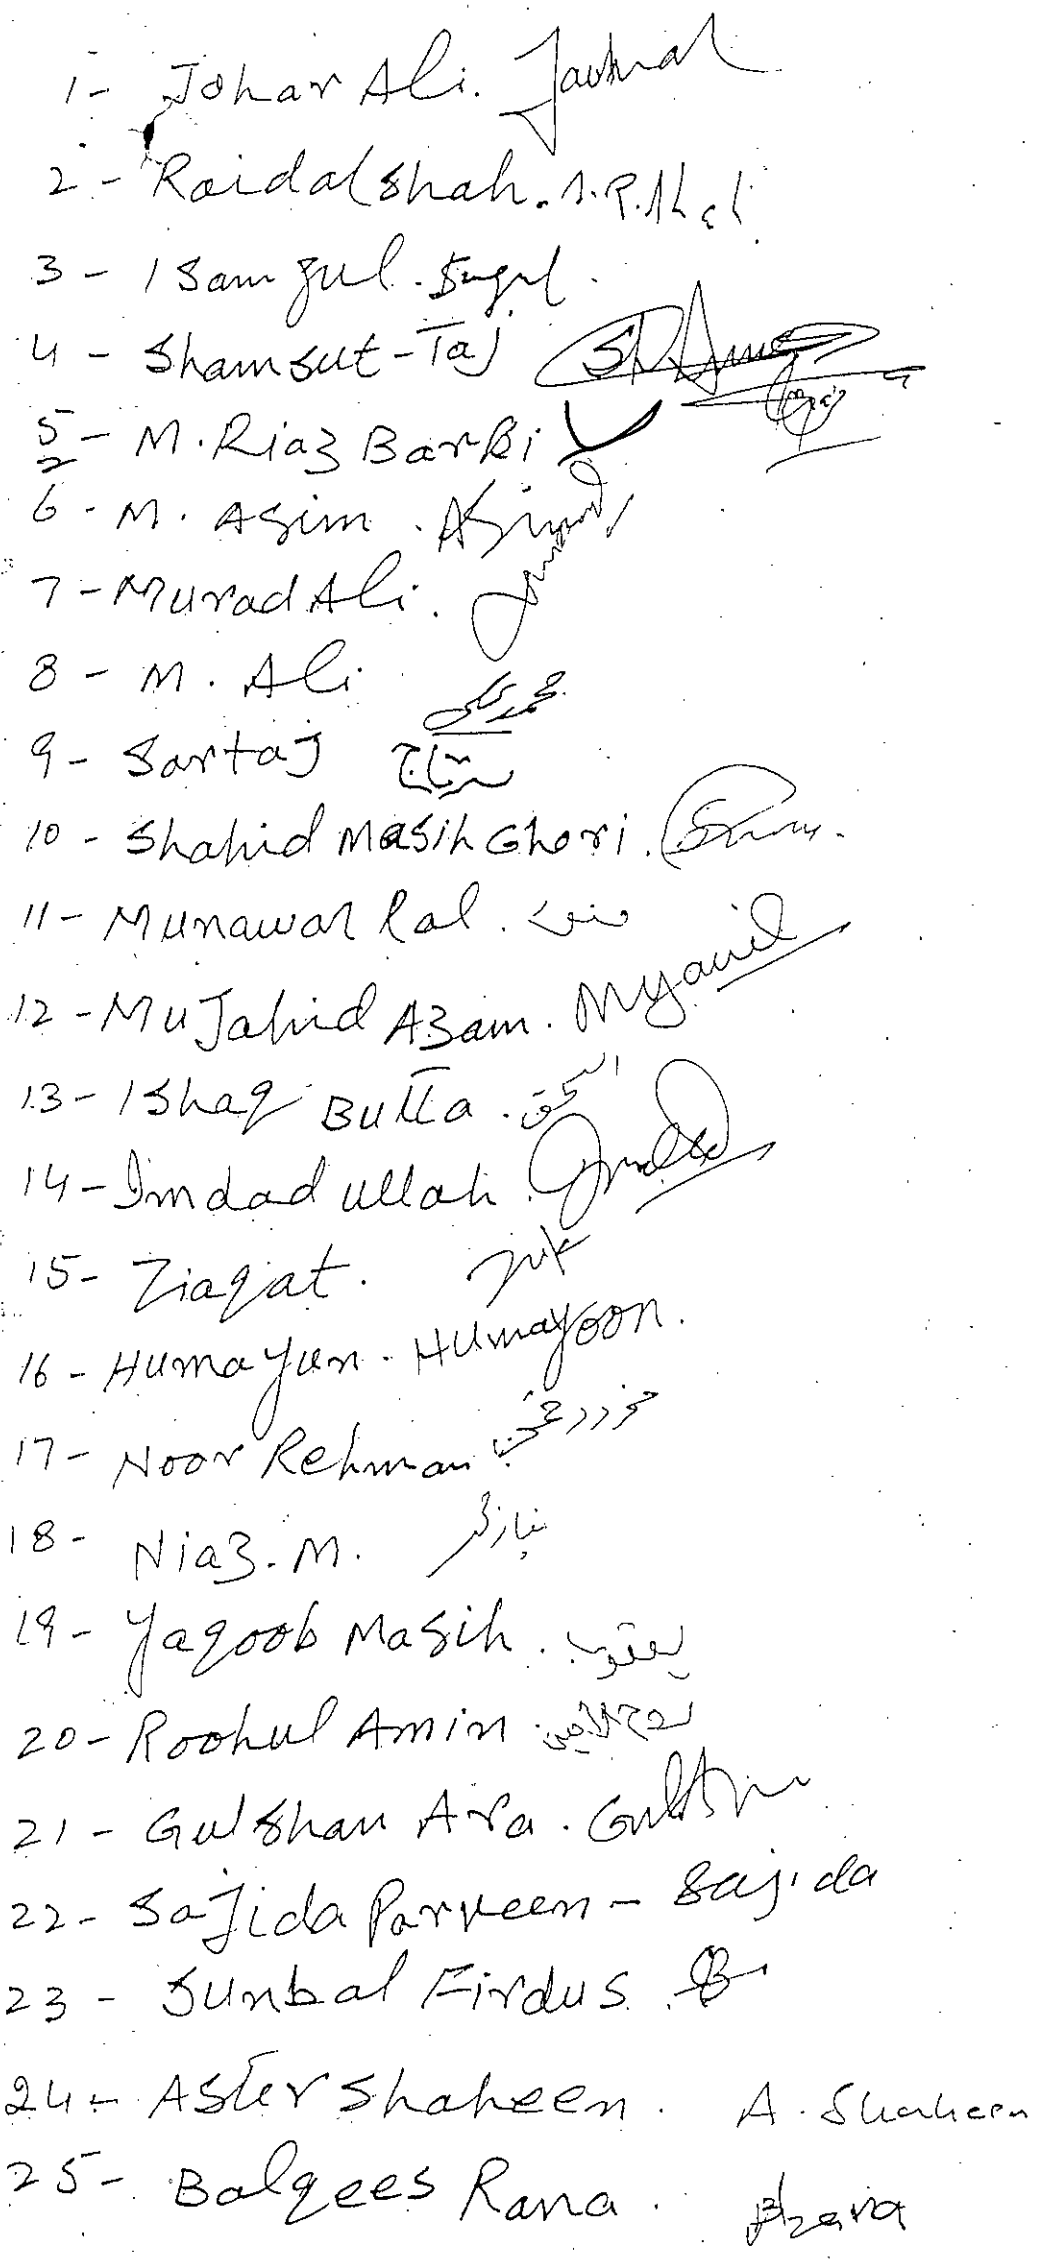 1- Johar Ali.
2- Raidal Shah. S.R.Shah
3- Isam gul. Isugul.
4- Shamsut-Taj
5- M. Riaz Barki
6- M. Asim. Asim
7- Murad Ali.
8- M. Ali محمد علی
9- Sartaj سرتاج
10- Shahid Masih Ghori.
11- Munawar Lal.
12- MuJahid Azam.
13- Ishaq Butta. اسحق
14- Imdad ullah.
15- Liaqat.
16- Humayun. Humayoon.
17- Noor Rehman
18- Niaz. M. نیاز محمد
19- Yaqoob Masih. یعقوب
20- Roohul Amin. روح الامین
21- Gulshan Ara.
22- SaJida Parveen - Sajida
23- Sunbal Firdus.
24- Aster Shaheen. A. Shaheen
25- Balqees Rana.